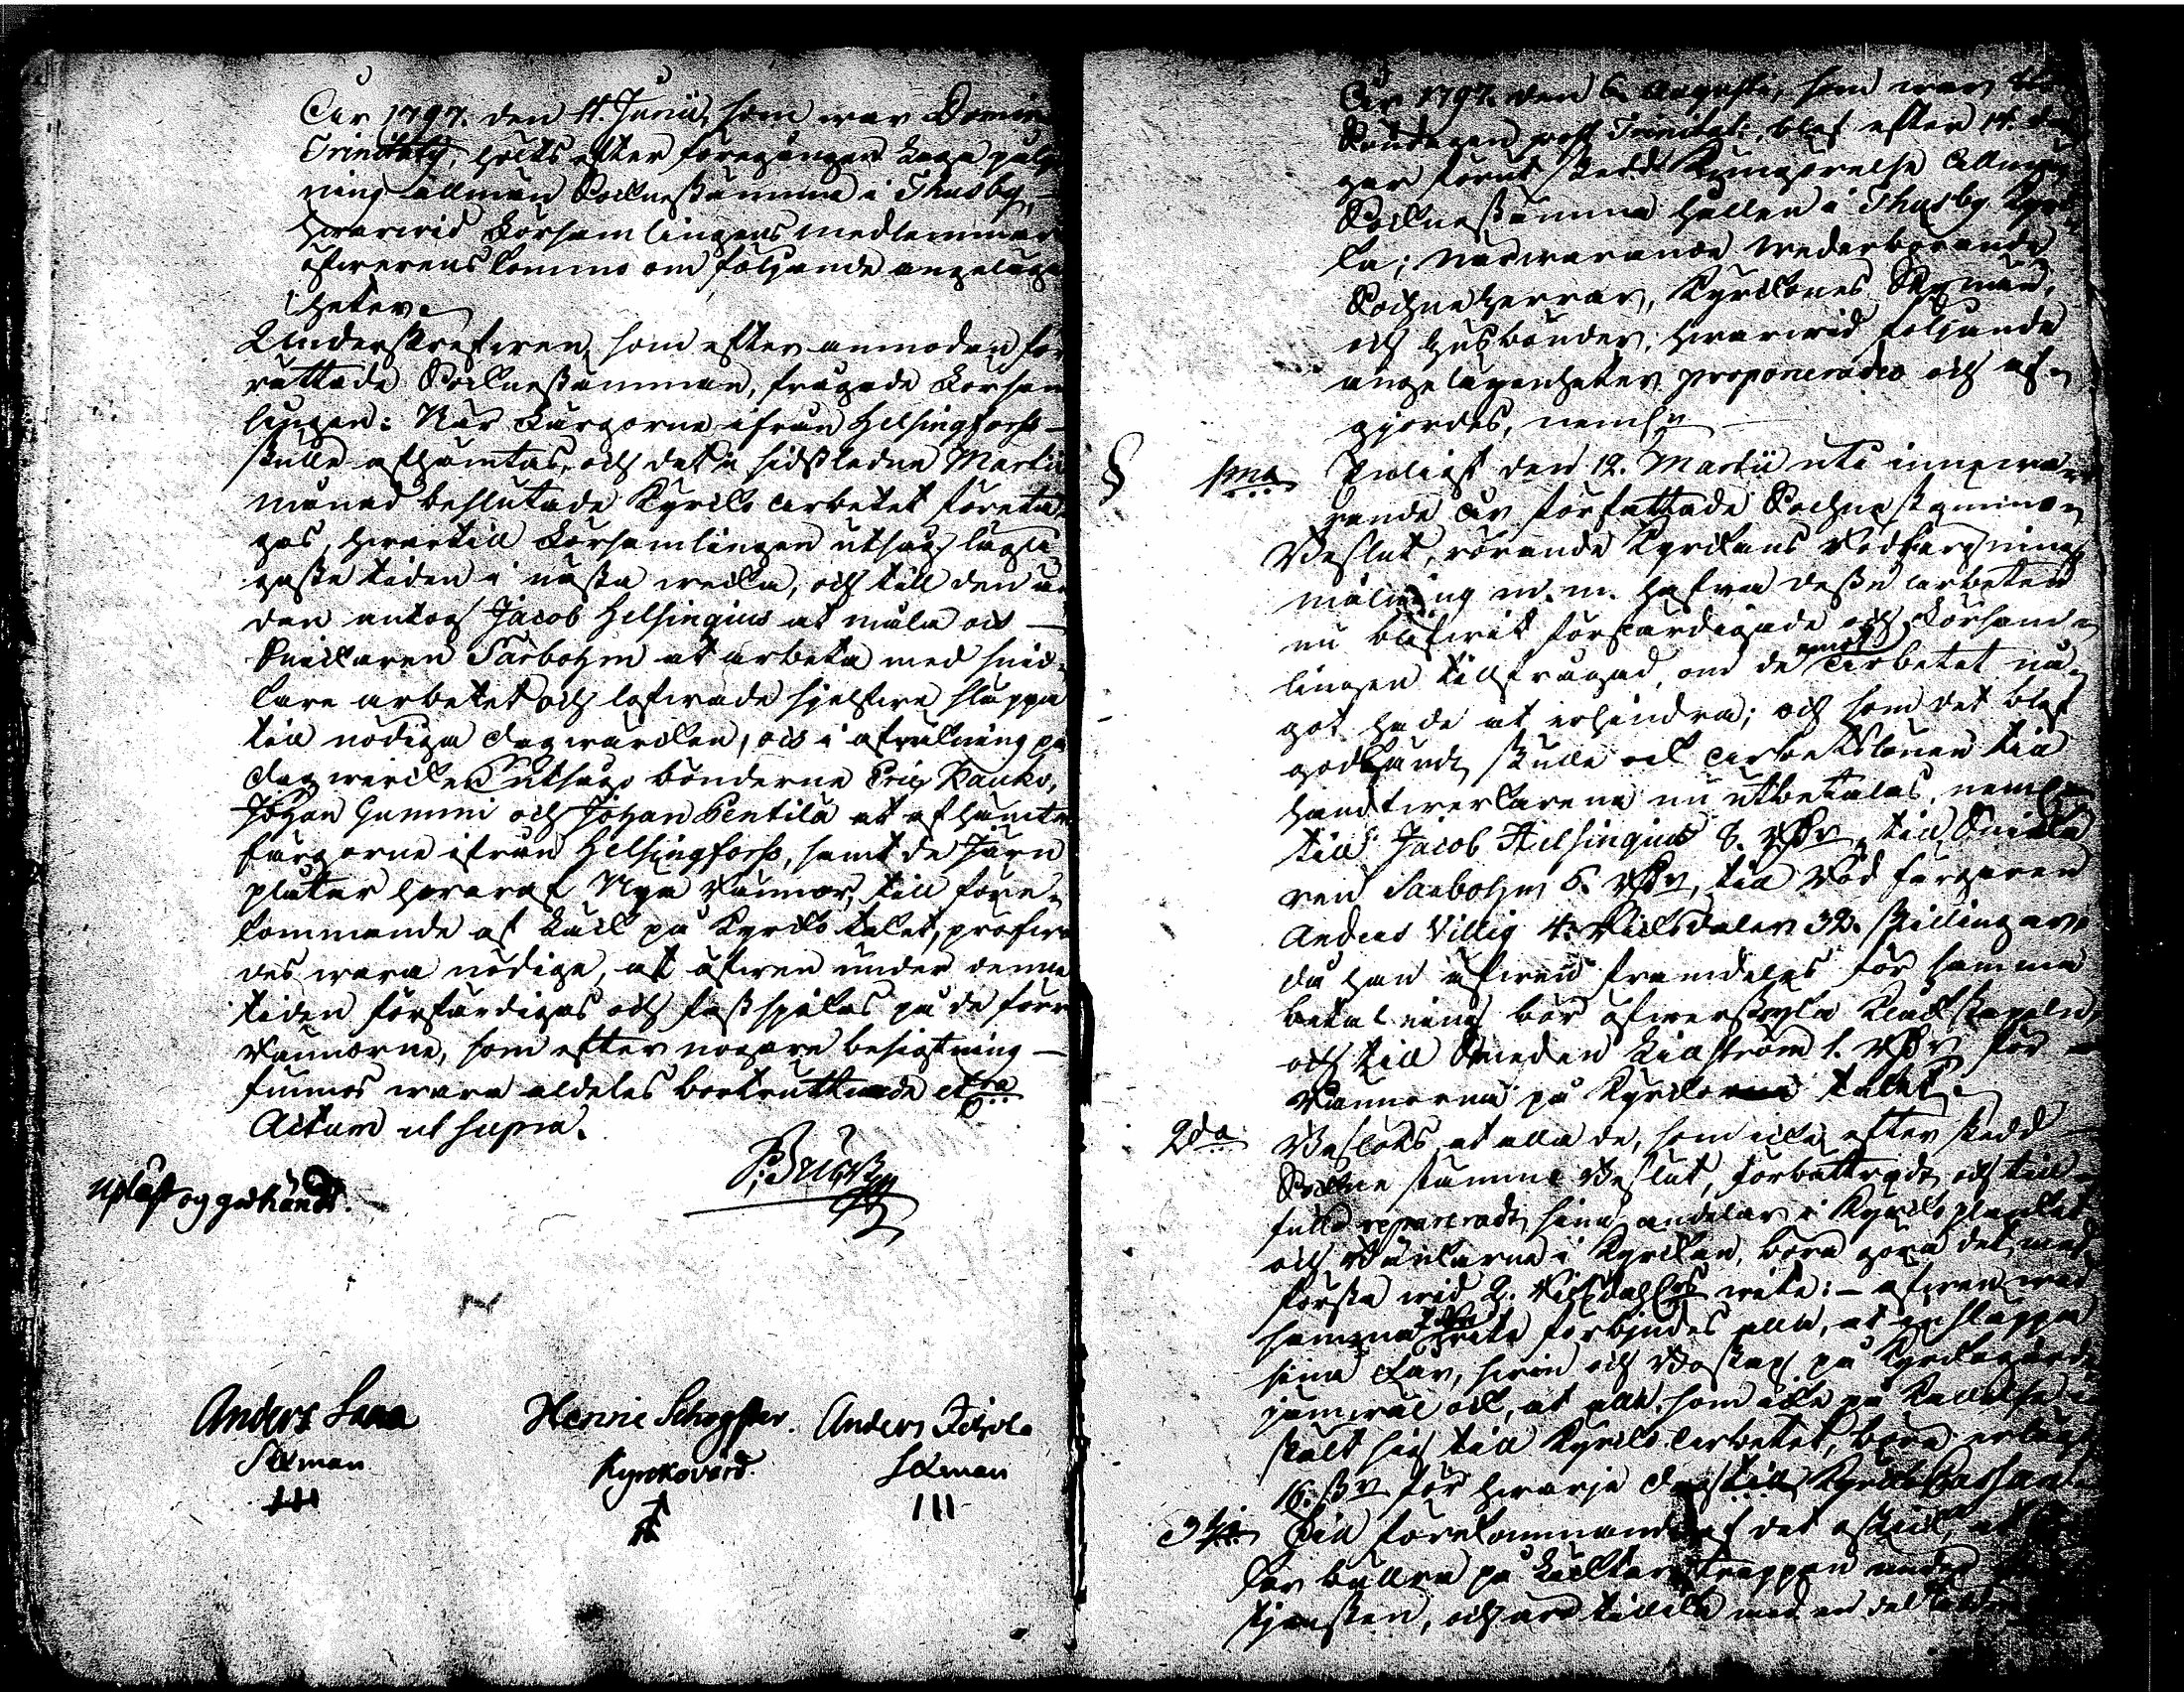 Åhr 1797. den 11. Junii, som war Domin
Trinitatis, hölts efter föregången Laga pålys
ning allmän Sockneståmma i Thusby,
hwarwid Församlingens medlemmar
öfwerenskommo om följande angelägen
heter.
Underskrefwen, som efter anmodan för
rättade Sockneståmman, frågade Försam
lingen: När Färgorne ifrån Helsingfors
skulle afhämtas, och det i sidstledne Martii
månad beslutade Kyrko arbetet företa-
gas, hwartill Församlingen utsåg läglig
gaste tiden i nästa wecka, och till den än
dan antogs Jacob Helsingius at måla och
Snickaren Sarbohm at arbeta med snic-
kare arbetet och lofwade sjelfwe släppa
till nödiga dagswärcken, och i afräkning på
dagswercken utsågs bönderne Eric Kauko,
Johan Gummi och Johan Pentilä at afhämta
färgorne ifrån Helsingfors, samt de Järn
plåtar hwaraf Nya Rännor, till före-
kommande af Läck på Kyrko taket, pröfwa
des wara nödiga, at äfwen under denna
tiden förfärdigas och fastspikas på de förr
Rännorne, som efter nogare besigtning
finnes wara aldeles bortruttnade etc.
Actum ut supra.
Uplast og godkändt.
Anders Saxa
Sexman
Henric Schogster
Kyrkovärd
Anders
Sexman
Åhr 1797. den 6. Augusti, som war
Söndagen post Trinitat: blef efter 14. da
gar förut skedd Kungörelse Allmän
Sockneståmma hållen i Thusby Kyr
ka; närwarande wederbörande
Socknes Herrar, Kyrkones Sexmän,
och husbönder, hwarwid följande
angelägenheter proponerades och af-
gjordes, neml:n
§ 1mo Enligt den 12. Martii uti innewa-
rande år författade Sockneståmmo
Beslut, rörande Kyrckans Rödfärgning
målning m. m. hafwa dessa arbeten
nu blifwit förfärdigade och Försam-
lingen tillfrågad, om de emot Arbetet nå-
got hade at erhindra; och som det blef
godkändt, skulle ock Arbetslönen till
handtwerkarena nu utbetalas, neml:n
till Jacob Helsingius 8. Rdr, till Snicka
ren Sarbohm 6. Rdr, till Röd färgaren
Anders Villig 4. Riksdaler 32. skillingar,
då han äfwen framdeles för samma
betalning bör öfwerstryka Klåckstapeln,
och till Smeden Lillström 1. Rdr för
Rännorna på Kyrko taket.
2do Beslöts at alla de, som icke efter skedd
Sockne stämmo Beslut, förbättradt och till-
fullo repareradt sina andelar i Kyrko planket
och Bänkarna i Kyrckan, böra göra det med
första wid 2. Riksdalers wite: äfwen wid
samma wite förbjudes alla, at insläppa
sina Får, swin och Boskap på Kyrkogården
jämwäl ock, at alla, som icke på kallelse in
stält sig till Kyrko Arbetet, böra erlägga
16. sk för hwarje dag till Kyrko Cassan
3tio Till förekommande af det oskick, at
för bullra på Läcktars trappan under
tjensten, och äro tillika med en del